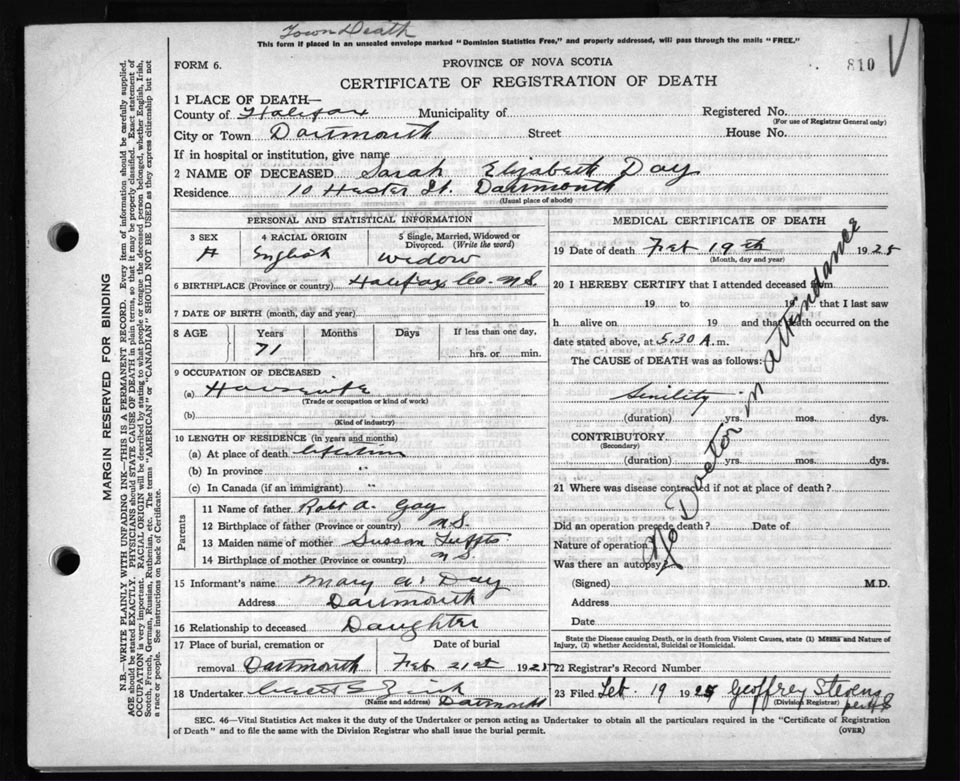 Town Death
This form if placed in an unsealed envelope marked "Dominion Statistics Free," and properly addressed, will pass through the mails "FREE."
FORM 6.
PROVINCE OF NOVA SCOTIA
810
CERTIFICATE OF REGISTRATION OF DEATH
1 PLACE OF DEATH—
County of Halifax Municipality of Registered No.
(For use of Registrar General only)
City or Town Dartmouth Street House No.
If in hospital or institution, give name
2 NAME OF DECEASED Sarah Elizabeth Day
Residence 10 Hester St. Dartmouth
(Usual place of abode)
PERSONAL AND STATISTICAL INFORMATION
3 SEX 4 RACIAL ORIGIN 5 Single, Married, Widowed or Divorced. (Write the word)
English widow
6 BIRTHPLACE (Province or country) Halifax Co. N.S.
7 DATE OF BIRTH (month, day and year)
8 AGE Years Months Days If less than one day,
71 hrs. or min.
9 OCCUPATION OF DECEASED
(a) Housewife
(Trade or occupation or kind of work)
(b)
(Kind of industry)
10 LENGTH OF RESIDENCE (in years and months)
(a) At place of death lifetime
(b) In province "
(c) In Canada (if an immigrant) "
Parents
11 Name of father Robt A. Gay
12 Birthplace of father (Province or country) N.S.
13 Maiden name of mother Sussan Tuffts
14 Birthplace of mother (Province or country) N.S.
15 Informant's name Mary A. Day
Address Dartmouth
16 Relationship to deceased Daughter
17 Place of burial, cremation or Date of burial
removal Dartmouth Feb 21st 1925
18 Undertaker Zink
(Name and address) Dartmouth
MEDICAL CERTIFICATE OF DEATH
19 Date of death Feb 19th 1925
(Month, day and year)
20 I HEREBY CERTIFY that I attended deceased from
19 to 19 that I last saw
h alive on 19 and that death occurred on
date stated above, at 5.30 A.m.
The CAUSE of DEATH was as follows:
Senility
(duration) yrs. mos. dys.
CONTRIBUTORY.
(Secondary)
(duration) yrs. mos. dys.
No Doctor in attendance
21 Where was disease contracted if not at place of death?
Did an operation precede death? Date of
Nature of operation
Was there an autopsy
(Signed) M.D.
Address
Date
State the Disease causing Death, or in death from Violent Causes, state (1) Means and Nature of
Injury, (2) whether Accidental, Suicidal or Homicidal.
22 Registrar's Record Number
23 Filed Feb. 19 1925 Geoffrey Stevens
(Division Registrar)
SEC. 46—Vital Statistics Act makes it the duty of the Undertaker or person acting as Undertaker to obtain all the particulars required in the "Certificate of Registration
of Death" and to file the same with the Division Registrar who shall issue the burial permit.
(OVER)
MARGIN RESERVED FOR BINDING
N.B.—WRITE PLAINLY WITH UNFADING INK—THIS IS A PERMANENT RECORD. Every item of information should be carefully supplied.
AGE should be stated EXACTLY. PHYSICIANS should STATE CAUSE OF DEATH in plain terms, so that it may be properly classified. Exact statement of
OCCUPATION is very important. RACIAL ORIGIN will be described by stating to what people or tongue the deceased person belonged, whether English, Irish,
Scotch, French, German, Russian, Ruthenian, etc. The terms "AMERICAN" or "CANADIAN" SHOULD NOT BE USED as they express citizenship but not
a race or people. See instructions on back of Certificate.